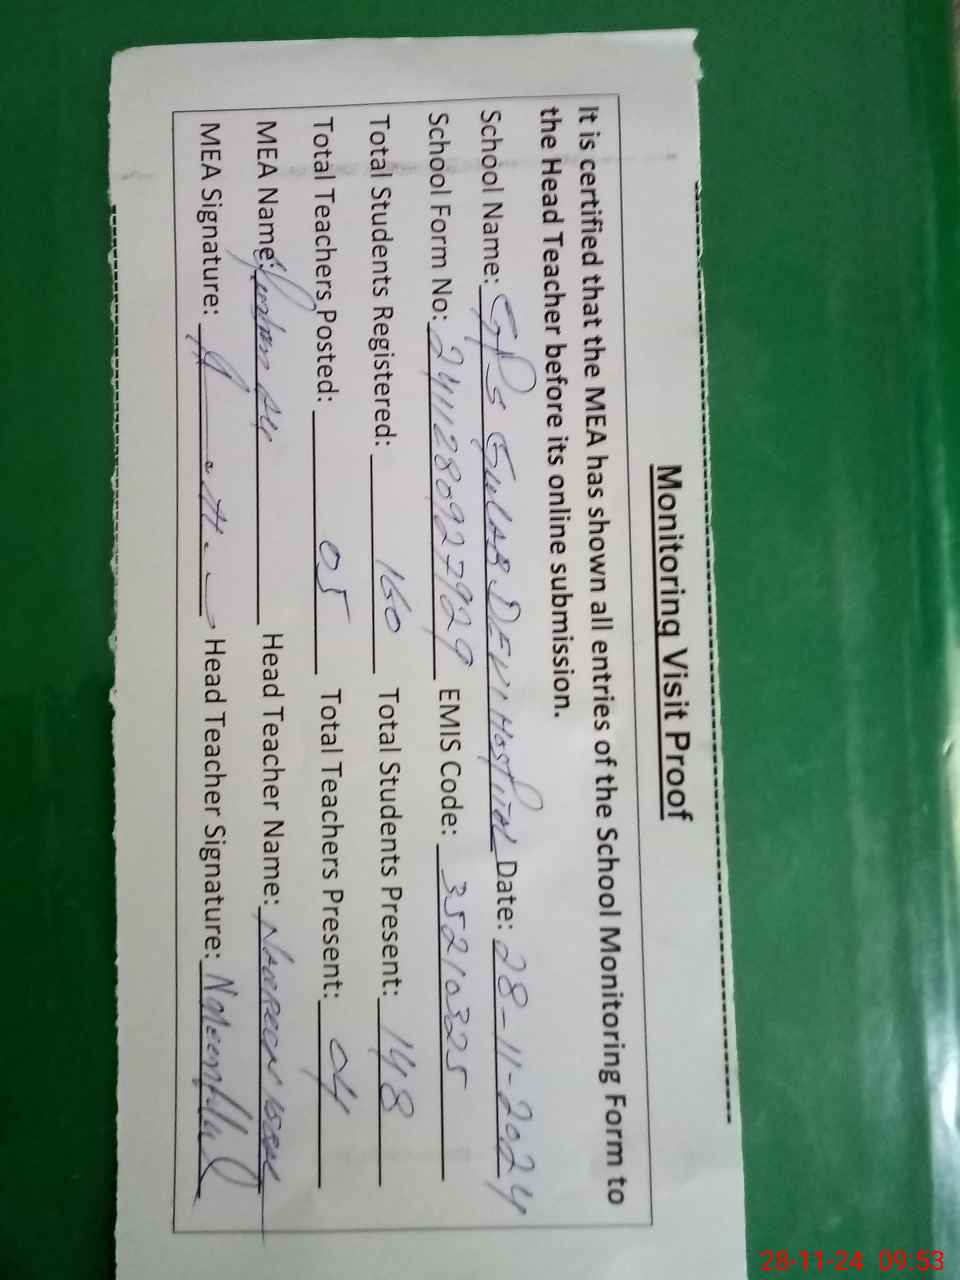 Monitoring Visit Proof
It is certified that the MEA has shown all entries of the School Monitoring Form to
the Head Teacher before its online submission.
School Name: GPS GULAB DEVI Hospital Date: 28-11-2024
School Form No: 2411280927929 EMIS Code: 35210325
Total Students Registered: 160 Total Students Present: 148
Total Teachers Posted: 05 Total Teachers Present: 04
MEA Name: Head Teacher Name:
MEA Signature: Head Teacher Signature:
28-11-24 09:53